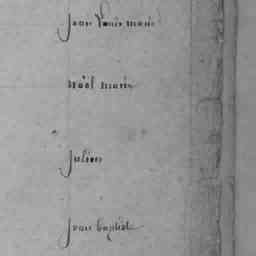 jean louis marie
noël marie
julien
jean baptiste